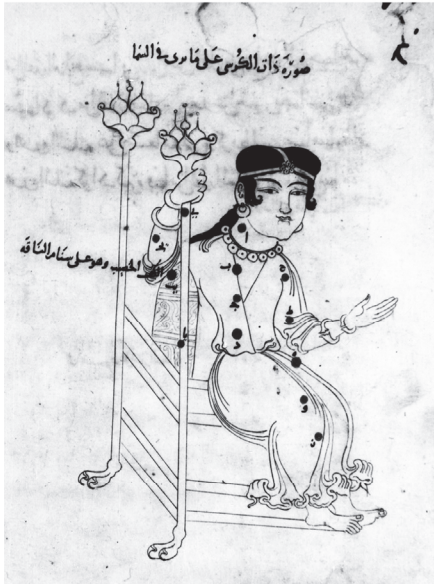 صورة ذات الكرسى على ما ترى فى السما
ا
ب
الكف الخضيب وهو على سنام الناقه
ج
د
و